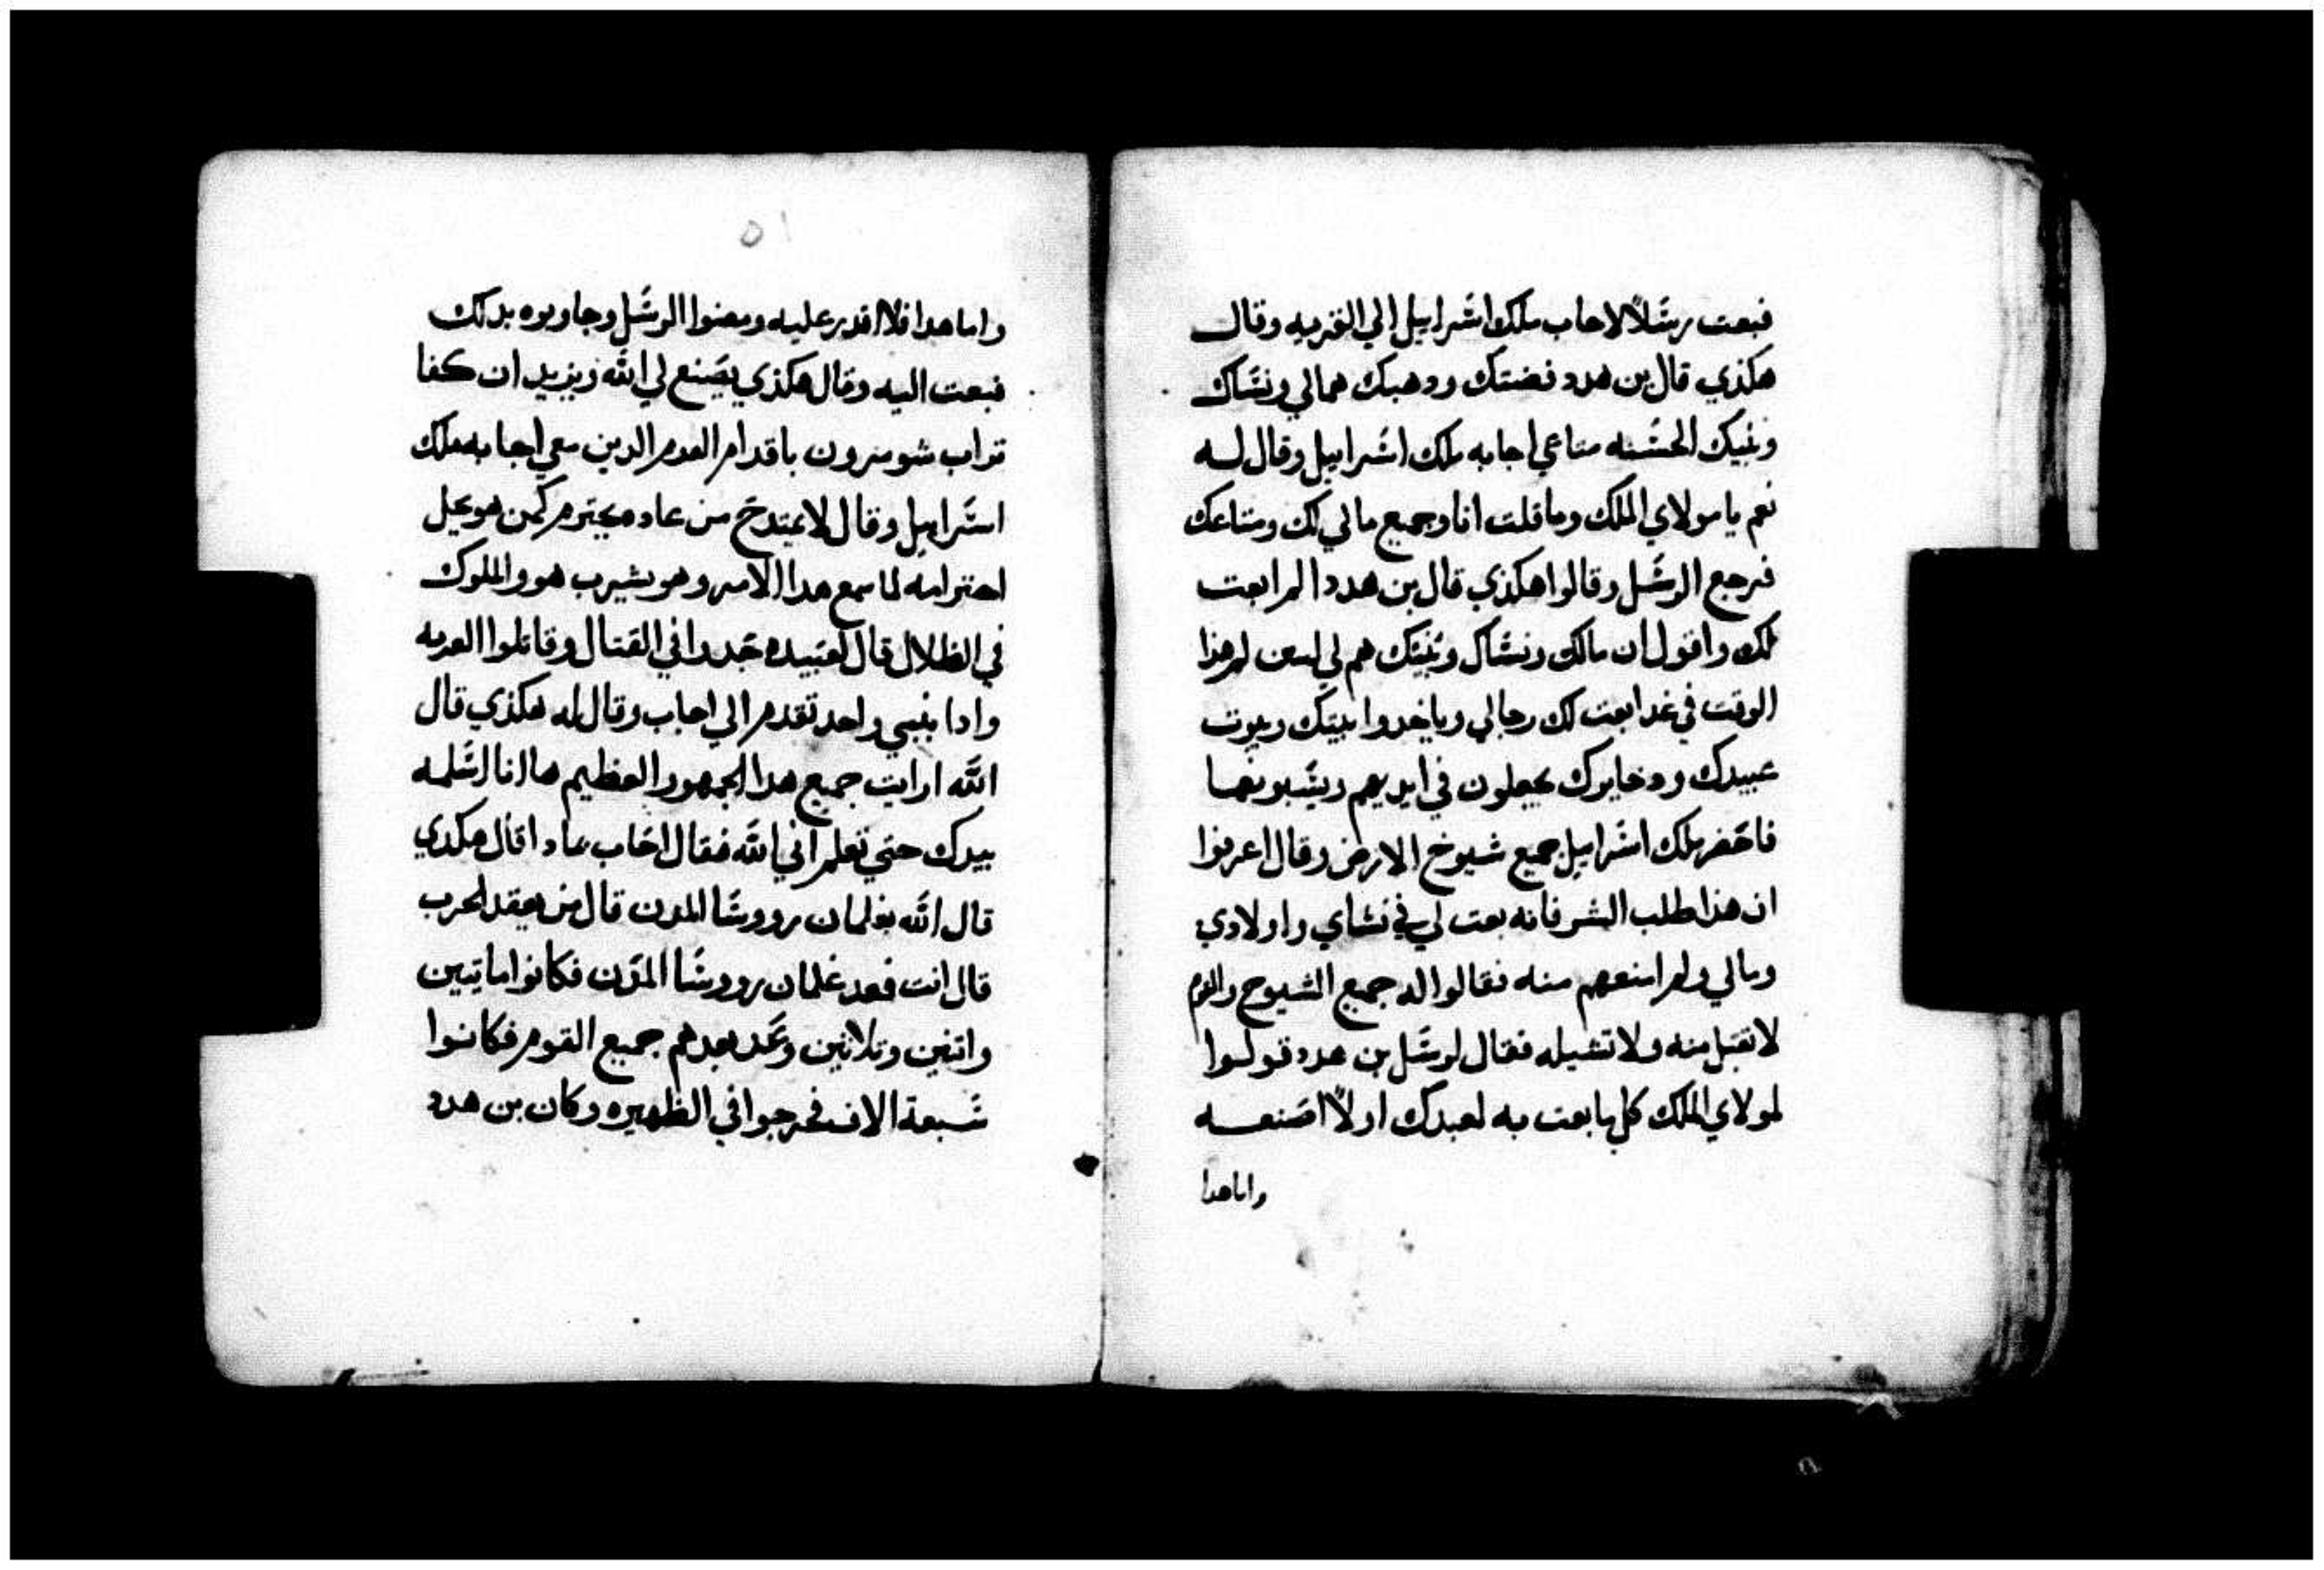 فبعت رسلاً لاحاب ملك اسراييل الي القريه وقال
هكذي قال بن هدد فضتك ودهبك هما لي ونساك
وبنيك الحسنه متاعي اجابه ملك اسراييل وقال له
نعم يا مولاي الملك وما قلت انا وجميع مالي لك ومتاعك
فرجع الرسل وقالوا هكذي قال بن هدد الم ابعت
لك واقول ان مالك ونساك وبنيك هم لي لهذا
الوقت في غد ابعت لك رجالي وياخدوا بيتك وبيوت
عبيدك ودخايرك يجعلون في ايديهم ويسبونها
فاحضر ملك اسراييل جميع شيوخ الارض وقال اعرفوا
ان هذا طلب الشر فانه بعت لي في نساي واولادي
ومالي ولم امنعهم منه فقالوا له جميع الشيوخ والقوم
لا تقبل منه ولا تشيله فقال لرسل بن هدد قولوا
لمولاي الملك كل ما بعت به لعبدك اولاً اصنعه
واما هدا
٥١
واما هدا فلا اقدر عليه ومضوا الرسل وجاوبوه بدلك
فبعت اليه وقال هكذي يصنع لي الله ويزيد ان كفا
تراب شومرون باقدام القوم الدين معي اجابه ملك
اسراييل وقال لا يمتدح من عاده يحترم كمن هو يحل
احترامه لما سمع هدا الامر وهو يشرب هو والملوك
في الظلال قال لعبيده جدوا في القتال وقاتلوا القريه
وادا بنبي واحد تقدم الي احاب وقال له هكذي قال
الله ارايت جميع هدا الجمهور العظيم ها انا اسلمه
بيدك حتي تعلم اني الله فقال احاب بمادا قال هكدي
قال الله بغلمان رووسا المدن قال من يعقد الحرب
قال انت فعد غلمان رووسا المدن فكانوا ماتيين
واتنين وتلاتين وعد بعدهم جميع القوم فكانوا
سبعة الاف فخرجوا في الظهيره وكان بن هدد